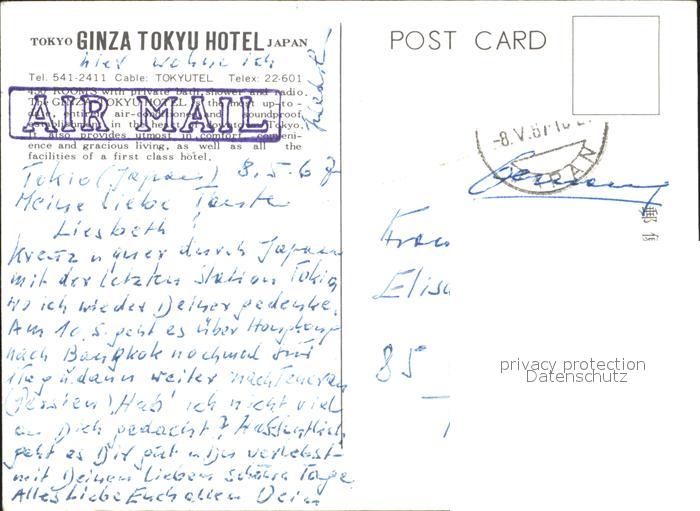 TOKYO GINZA TOKYU HOTEL JAPAN
hier wohne ich
Tel. 541-2411 Cable: TOKYUTEL Telex: 22-601
450 ROOMS with private bath, shower and radio.
The GINZA TOKYU HOTEL is the most up-to-
date, entirely air-conditioned and soundproof
establishment in the heart of downtown Tokyo.
It also provides utmost in comfort, conveni-
ence and gracious living, as well as all the
facilities of a first class hotel.
AIR MAIL
Tokio (Japan) 8.5.67
Meine liebe Tante
Liesbeth!
Kreuz u quer durch Japan
mit der letzten Station Tokio
wo ich wieder Deiner gedenke.
Am 10.5. geht es über Hongkong
nach Bangkok nochmal
Tag u dann weiter nach Teheran
(Persien). Hab' ich nicht viel
an Dich gedacht? Hoffentlich
geht es Dir gut u Du verlebst
mit Deinen Lieben schöne Tage
Alles Liebe Euch allen Dein
POST CARD
-8.V.67
Germany
Frau
Elisa
85
privacy protection
Datenschutz